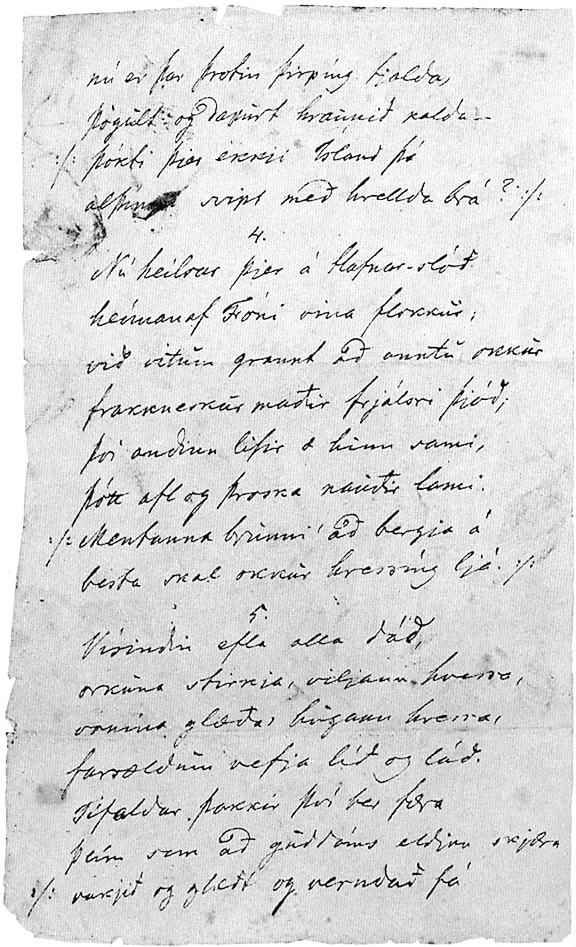 nú er þar þrotin þirpíng tjalda,
þögult og dapurt hraunið kalda—
:/: þókti þjer ekkji Ísland þá
svipt með hrellda brá? :/:
4.
Nú heilsar þjer á Hafnar-slóð
heíman af Fróni vina flokkur;
við vitum grannt að anntu okkur
frakkneskur maður frjálsri þjóð;
því andinn lifir æ hinn sami,
þótt afl og þroska nauðir lami.
:/: Mentanna brunni' að bergja á
besta skal okkur hressíng ljá. :/:
5.
Vísindin efla alla dáð,
orkuna stirkja, viljann hvessa,
vonina glæða, hugann hressa,
farsældum vefja líð og láð.
Tífaldar þakkir því ber færa
þeím sem að guðdóms eldinn skjæra
:/: vakjið og glædt og verndað fá